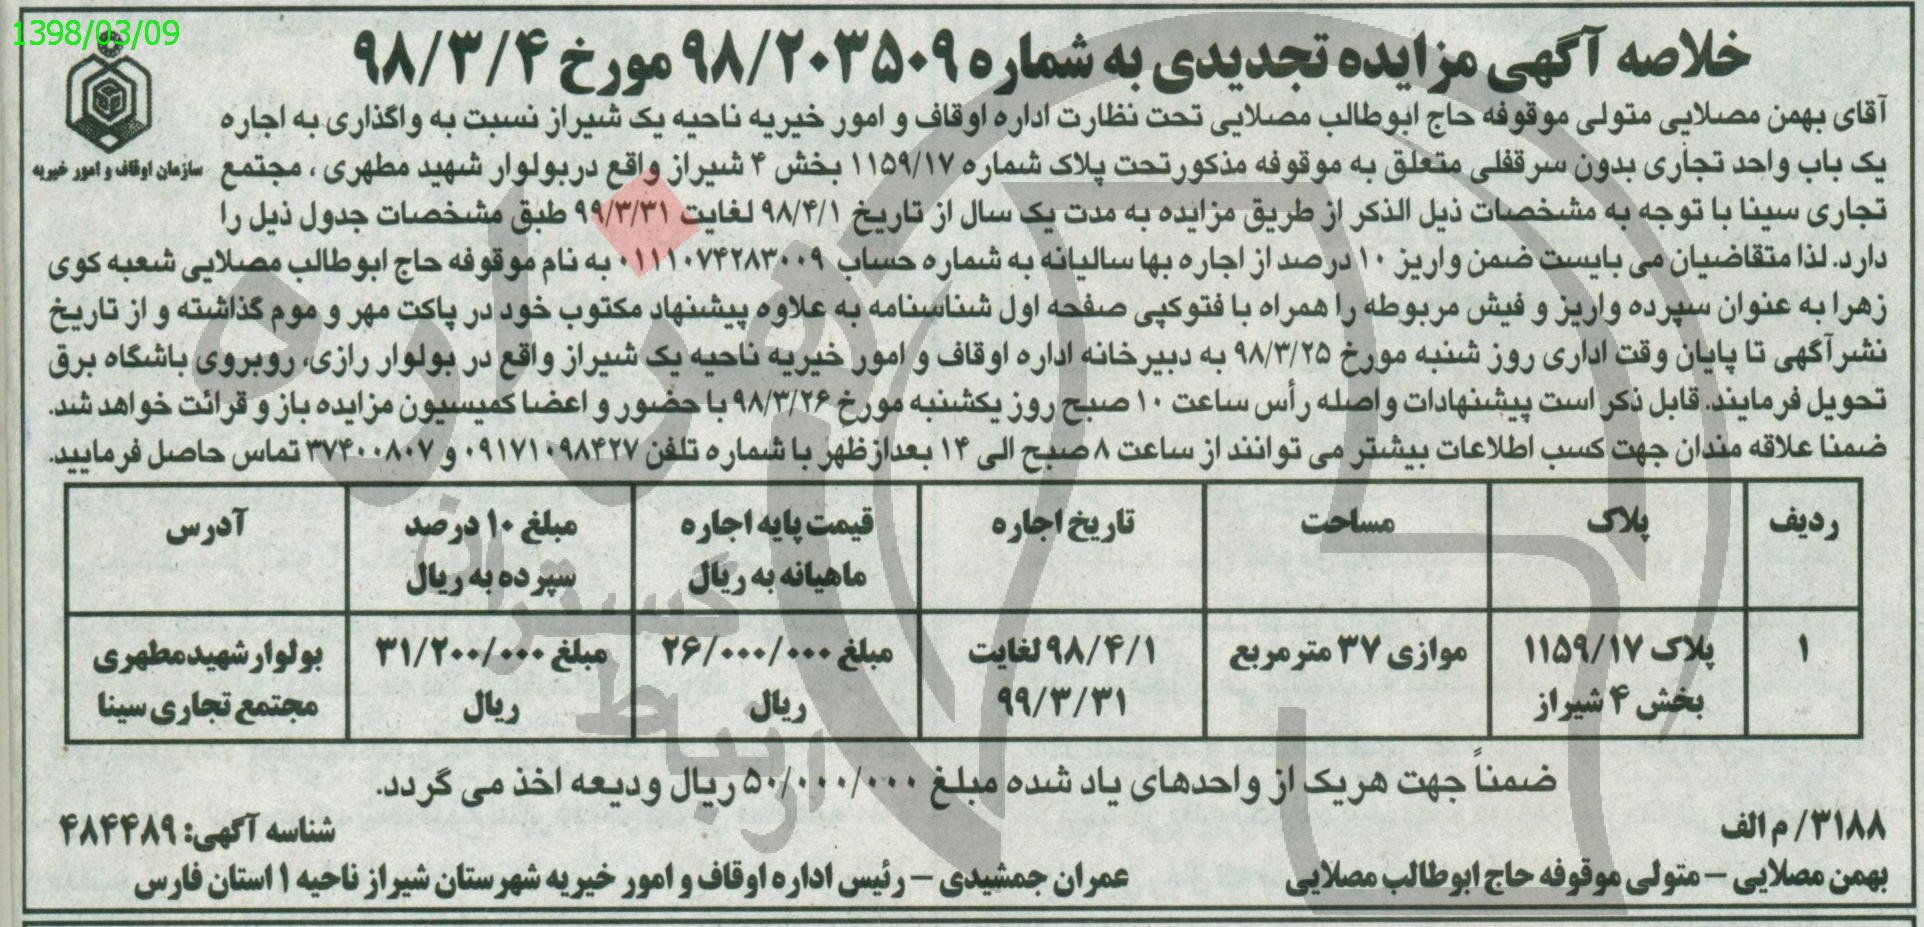 1398/03/09
خلاصه آگهی مزایده تجدیدی به شماره ۹۸/۲۰۳۵۰۹ مورخ ۹۸/۳/۴
سازمان اوقاف و امور خیریه
آقای بهمن مصلایی متولی موقوفه حاج ابوطالب مصلایی تحت نظارت اداره اوقاف و امور خیریه ناحیه یک شیراز نسبت به واگذاری به اجاره
یک باب واحد تجاری بدون سرقفلی متعلق به موقوفه مذکور تحت پلاک شماره ۱۱۵۹/۱۷ بخش ۴ شیراز واقع در بولوار شهید مطهری ، مجتمع
تجاری سینا با توجه به مشخصات ذیل الذکر از طریق مزایده به مدت یک سال از تاریخ ۹۸/۴/۱ لغایت ۹۹/۳/۳۱ طبق مشخصات جدول ذیل را
دارد. لذا متقاضیان می بایست ضمن واریز ۱۰ درصد از اجاره بها سالیانه به شماره حساب ۰۱۱۱۰۷۴۲۸۳۰۰۹ به نام موقوفه حاج ابوطالب مصلایی شعبه کوی
زهرا به عنوان سپرده واریز و فیش مربوطه را همراه با فتوکپی صفحه اول شناسنامه به علاوه پیشنهاد مکتوب خود در پاکت مهر و موم گذاشته و از تاریخ
نشر آگهی تا پایان وقت اداری روز شنبه مورخ ۹۸/۳/۲۵ به دبیرخانه اداره اوقاف و امور خیریه ناحیه یک شیراز واقع در بولوار رازی، روبروی باشگاه برق
تحویل فرمایند. قابل ذکر است پیشنهادات واصله رأس ساعت ۱۰ صبح روز یکشنبه مورخ ۹۸/۳/۲۶ با حضور و اعضا کمیسیون مزایده باز و قرائت خواهد شد.
ضمنا علاقه مندان جهت کسب اطلاعات بیشتر می توانند از ساعت ۸ صبح الی ۱۴ بعدازظهر با شماره تلفن ۰۹۱۷۱۰۹۸۴۲۷ و ۳۷۴۰۰۸۰۷ تماس حاصل فرمایید.
ردیف پلاک مساحت تاریخ اجاره قیمت پایه اجاره مبلغ ۱۰ درصد آدرس
ماهیانه به ریال سپرده به ریال
۱ پلاک ۱۱۵۹/۱۷ موازی ۳۷ متر مربع ۹۸/۴/۱ لغایت مبلغ ۲۶/۰۰۰/۰۰۰ مبلغ ۳۱/۲۰۰/۰۰۰ بولوار شهید مطهری
بخش ۴ شیراز ۹۹/۳/۳۱ ریال ریال مجتمع تجاری سینا
ضمناً جهت هر یک از واحدهای یاد شده مبلغ ۵۰/۰۰۰/۰۰۰ ریال ودیعه اخذ می گردد.
۳۱۸۸/ م الف شناسه آگهی: ۴۸۴۴۸۹
بهمن مصلایی – متولی موقوفه حاج ابوطالب مصلایی عمران جمشیدی – رئیس اداره اوقاف و امور خیریه شهرستان شیراز ناحیه ۱ استان فارس
هزاره
گستران
ارتباط